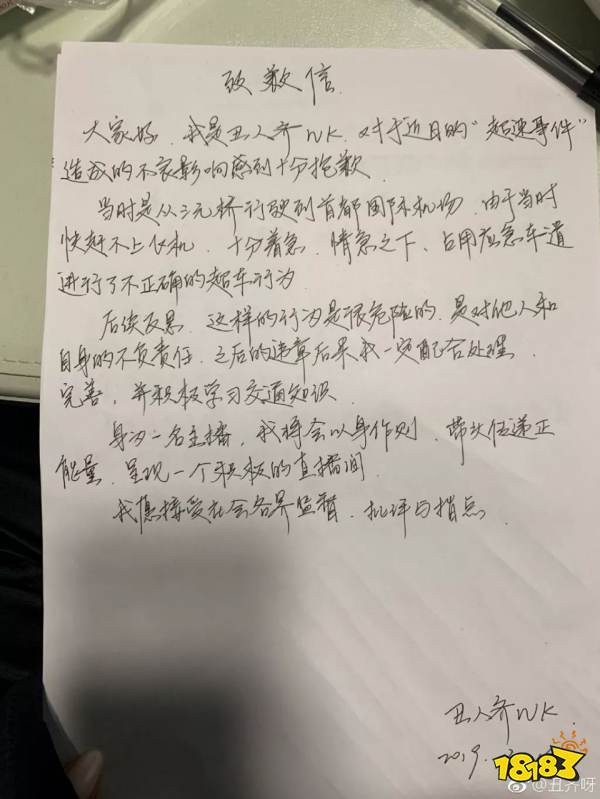 致歉信
大家好、我是丑人齐NK、对于近日的“超速事件”
造成的不良影响感到十分抱歉
当时是从三元桥行驶到首都国际机场、由于当时
快赶不上飞机、十分着急、情急之下、占用应急车道
进行了不正确的超车行为
后续反思、这样的行为是很危险的、是对他人和
自身的不负责任、之后的违章后果我一定配合处理、
完善、并积极学习交通知识
身为一名主播、我将会以身作则、带头传递正
能量、呈现一个积极的直播间
我愿接受社会各界监督、批评与指点
丑人齐NK
2019.
18183
@丑齐呀